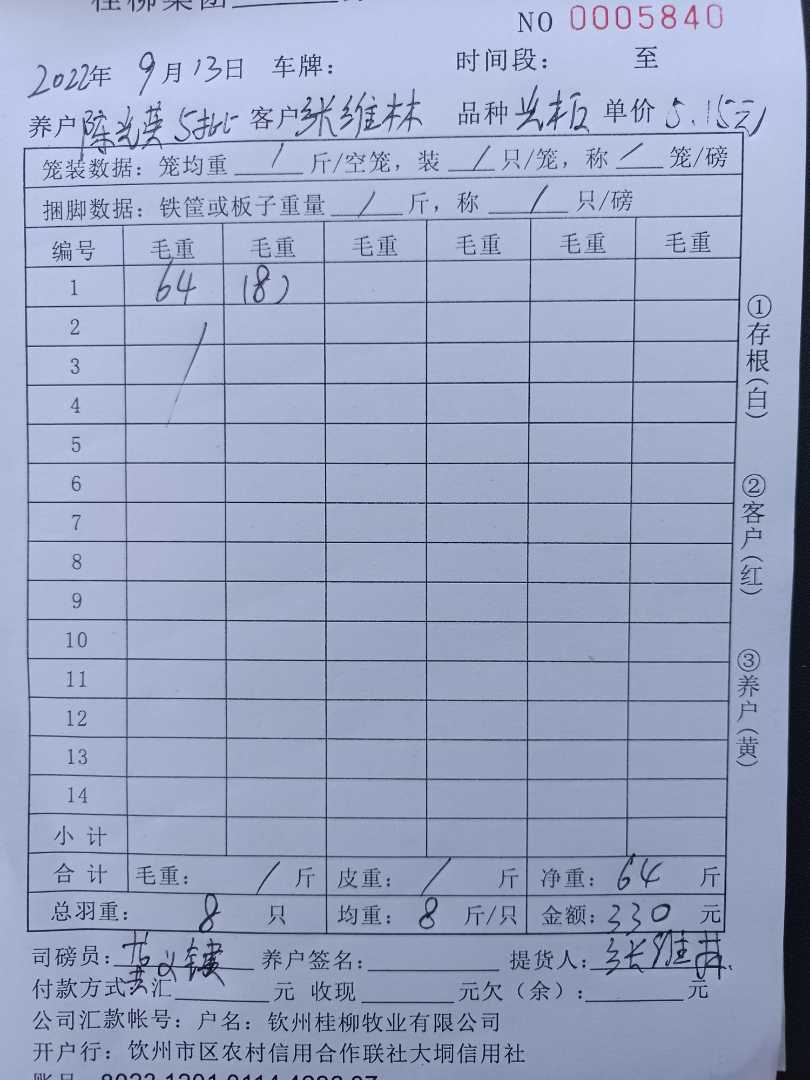 桂柳集团
NO 0005840
2022年 9月13日 车牌： 时间段： 至
养户 陈光英 5批 客户 张维林 品种 单价 5.15元
笼装数据：笼均重 / 斤/空笼，装 / 只/笼，称 / 笼/磅
捆脚数据：铁筐或板子重量 / 斤，称 / 只/磅
编号 毛重 毛重 毛重 毛重 毛重 毛重
1 64 (8)
2
3
4
5
6
7
8
9
10
11
12
13
14
小计
合计 毛重： / 斤 皮重： / 斤 净重：64 斤
总羽重： 8 只 均重：8 斤/只 金额：330 元
司磅员： 养户签名： 提货人：张维林
付款方式：汇 元 收现 元欠（余）： 元
公司汇款帐号：户名：钦州桂柳牧业有限公司
开户行：钦州市区农村信用合作联社大垌信用社
①存根（白）
②客户（红）
③养户（黄）